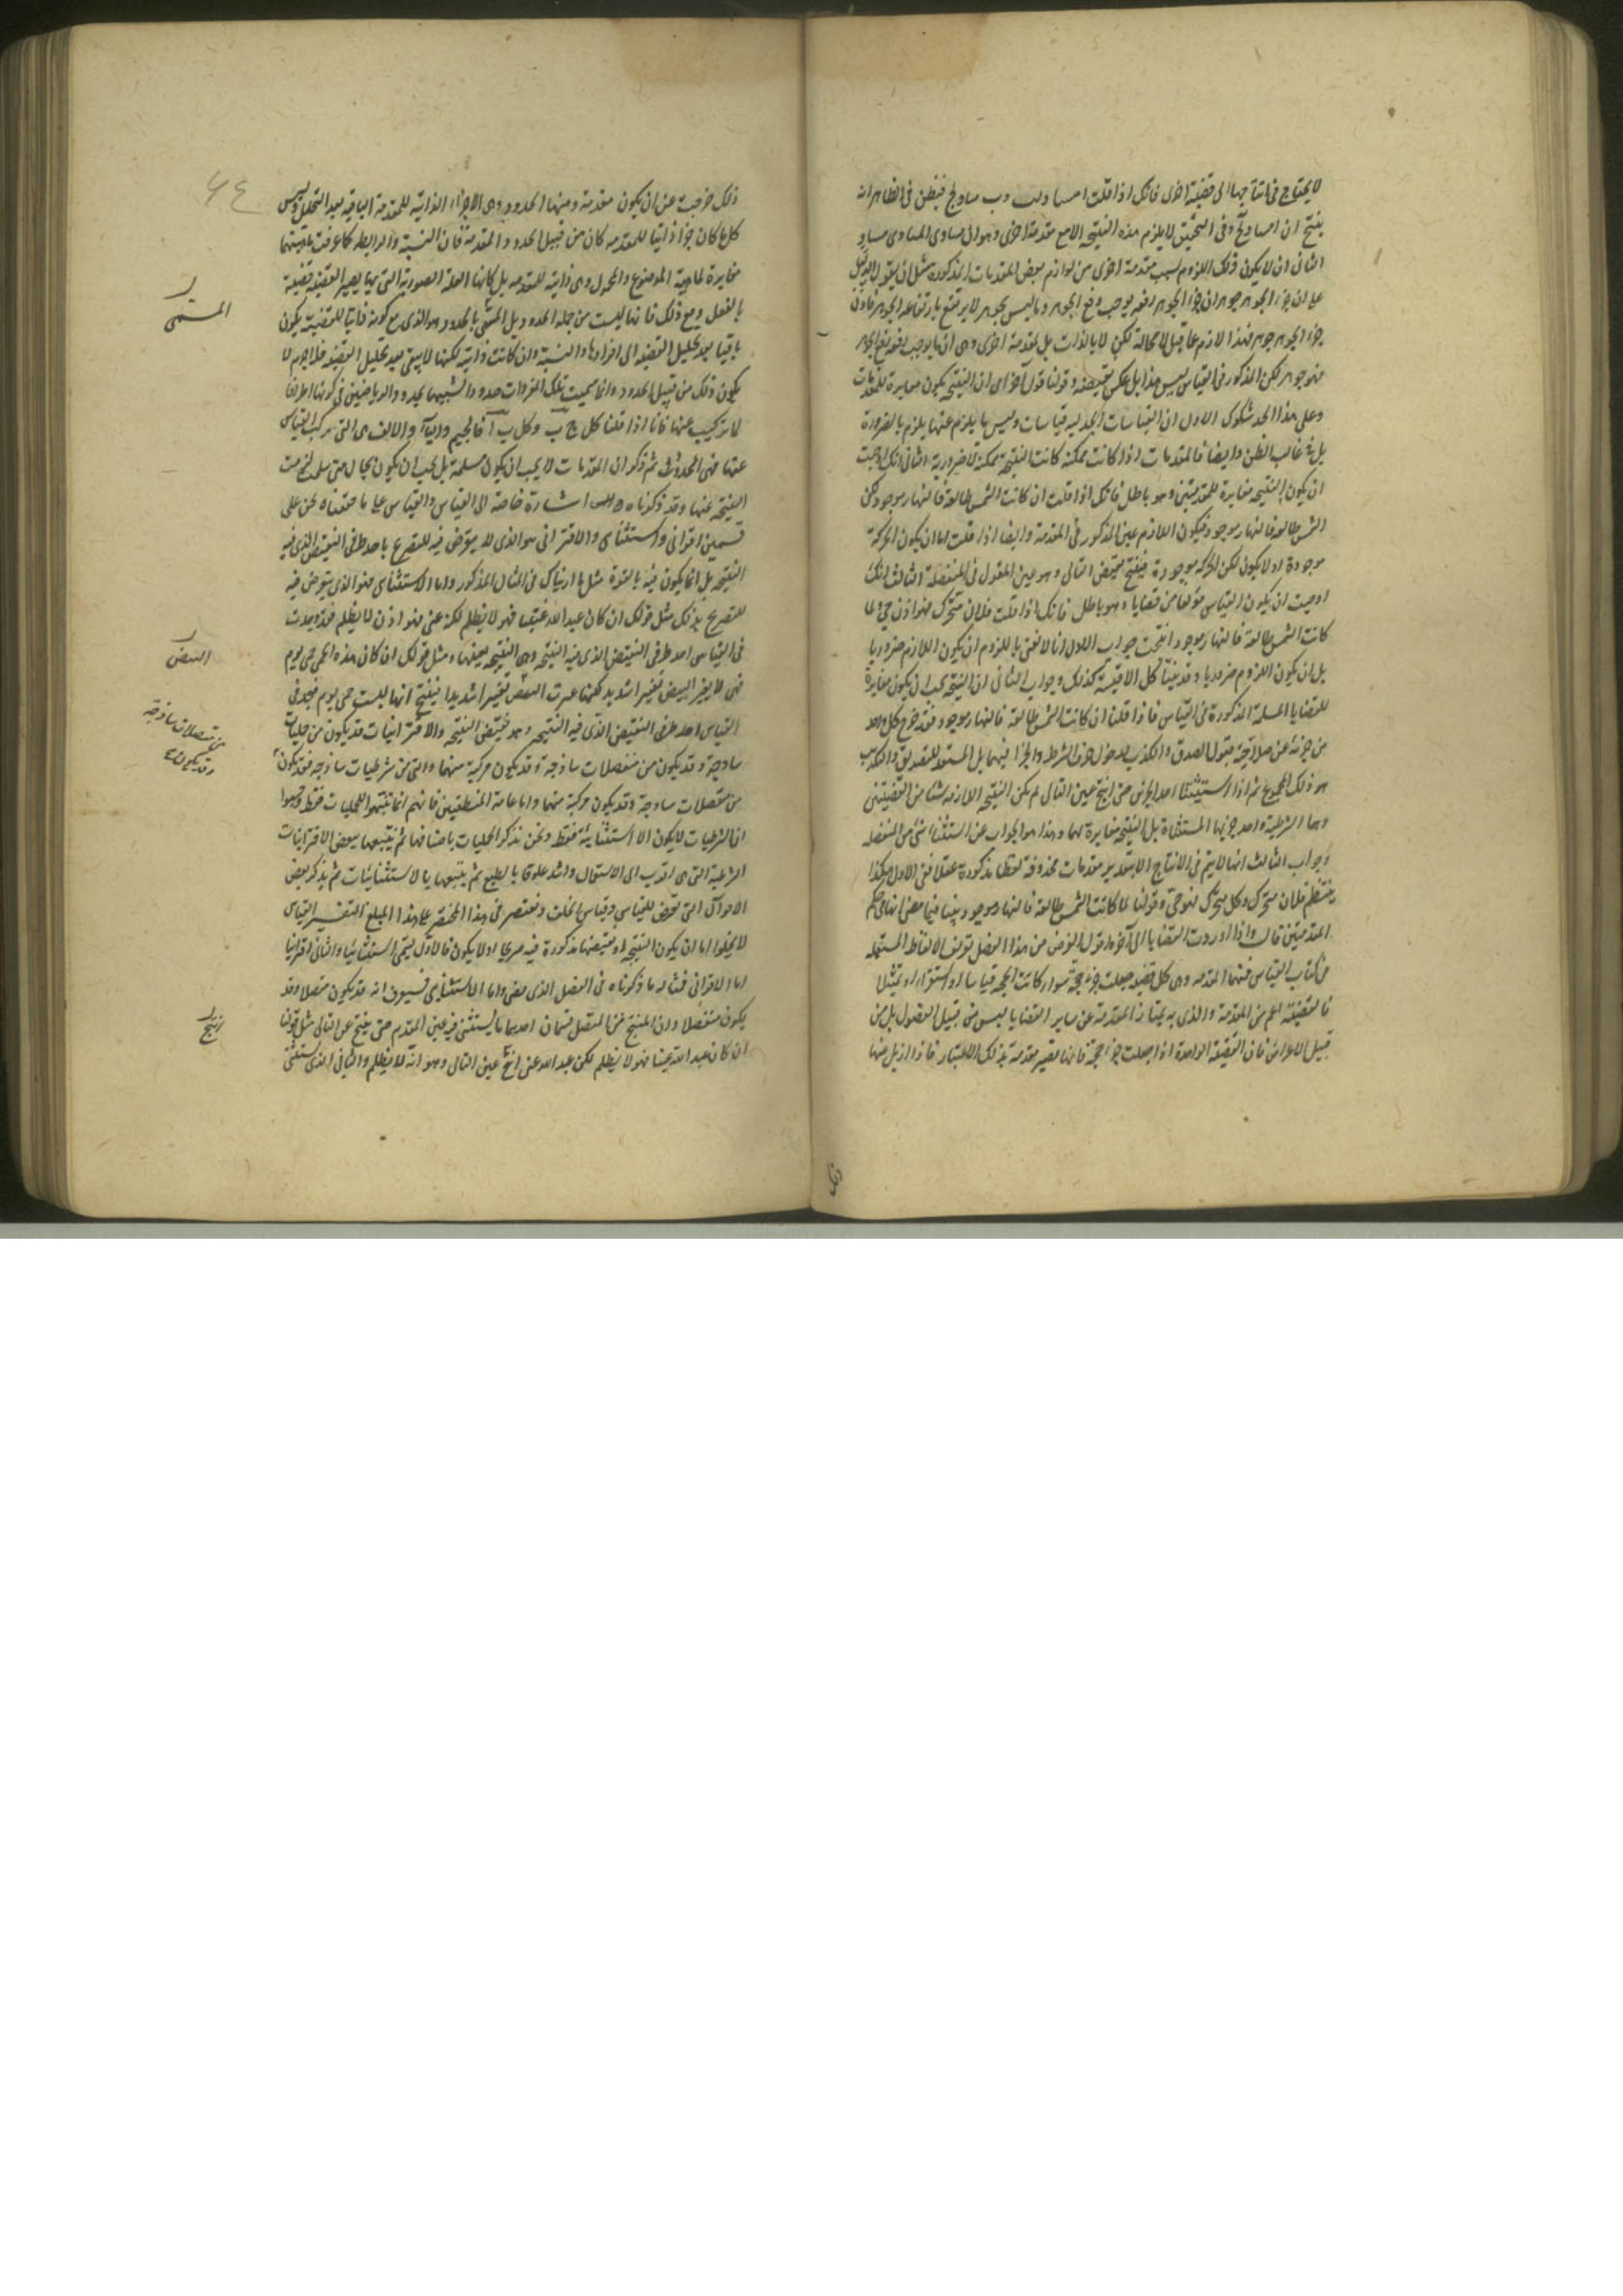 لا يحتاج في انتاجها الى قضية اخرى فانك اذا قلت ا مساو لب وب مساو لج فيظن في الظاهر انه
ينتج ان ا مساو لج وفي التحقيق لا يلزم هذه النتيجة الا مع مقدمة اخرى وهو ان مساوى المساوى مساو
الثاني ان لا يكون ذلك اللزوم بسبب مقدمة اخرى من لوازم بعض المقدمات المذكورة مثل ان يقول
على ان جزء الجوهر جوهر ان جزء الجوهر رفعه يوجب رفع الجوهر وما ليس بجوهر لا يرتفع بارتفاعه الجوهر فاذن
جزء الجوهر جوهر فهذا لازم مما قبل لا محالة لكن لا بالذات بل لمقدمة اخرى وهى ان ما يوجب رفعه رفع الجوهر
فهو جوهر لكن المذكور في القياس ليس هذا بل عكس نقيضه وقولنا قول آخر اى ان النتيجة يكون مغايرة للمقدمات
وعلى هذا الحد شكوك الاول ان القياسات الجدلية قياسات وليس ما يلزم عنها يلزم بالضرورة
بل في غالب الظن وايضا فالمقدمات اذا كانت ممكنة كانت النتيجة ممكنة لا ضرورية الثاني انك اوجبت
ان يكون النتيجة مغايرة للمقدمتين وهو باطل فانك اذا قلت ان كانت الشمس طالعة فالنهار موجود لكن
الشمس طالعة فالنهار موجود فيكون اللازم عين المذكور في المقدمة وايضا اذا قلت اما ان يكون الحركة
موجودة او لا يكون لكن الحركة موجودة فينتج نقيض التالى وهو عين المقدم في المنفصلة الثالث انك
اوجبت ان يكون القياس مؤلفا من قضايا وهو باطل فانك اذا قلت فلان متحرك فهو اذن حى ولما
كانت الشمس طالعة فالنهار موجود انتجت جواب الاول انا لا نعنى باللزوم ان يكون اللازم ضروريا
بل ان يكون اللزوم ضروريا وقد بينا كل الاقيسة كذلك وجواب الثاني ان النتيجة يجب ان يكون مغايرة
للقضايا المسلمة المذكورة في القياس فاذا قلنا ان كانت الشمس طالعة فالنهار موجود فقد خرج كل واحد
من جزئيه عن صلاحية قبول الصدق والكذب لدخول حرف الشرط والجزا فيهما بل المستعد للتصديق والتكذيب
هو ذلك المجموع ثم اذا استثنينا احد الجزئين حتى انتج عين التالى لم يكن النتيجة اللازمة شيئا من القضيتين
وهما الشرطية واحد جزئيها المستثناة بل النتيجة مغايرة لهما وهذا هو الجواب عن استثناء شئ من المنفصلة
وجواب الثالث انها لا يتم في الانتاج الا بتقدير مقدمات محذوفة لفظا مذكورة عقلا ففى الاول هكذا
ينتظم فلان متحرك وكل متحرك فهو حى وقولنا لما كانت الشمس طالعة فالنهار موجود بينا فيما مضى انها في حكم
المقدمتين قال واذا اوردت القضايا الى آخره اقول الغرض من هذا الفصل تعريف الالفاظ المستعملة
في كتاب القياس فمنها المقدمة وهى كل قضية جعلت جزء حجة سواء كانت الحجة قياسا او استقراء او تمثيلا
فالقضية اعم من المقدمة والذى به يمتاز المقدمة عن ساير القضايا ليس من قبيل الفصول بل من
قبيل الاعراض فان القضية الواحدة اذا جعلت جزء حجة فانها تصير مقدمة بذلك الاعتبار فاذا ازيل عنها
ذلك
٦٤
ذلك خرجت عن ان يكون مقدمة ومنها الحدود وهى الاجزاء الذاتية للمقدمة الباقية بعد التحليل وليس
كل ما كان جزءا ذاتيا للمقدمة كان من قبيل الحدود والمقدمة فان النسبة والرابطة كما عرفت ماهيتها
مغايرة لماهية الموضوع والمحمول وهى ذاتية للمقدمة بل كانها العلة الصورية التى بها يصير القضية قضية
بالفعل ومع ذلك فانها ليست من جملة الحدود بل المسمى بالحدود هو الذى مع كونه ذاتيا للقضية يكون
باقيا بعد تحليل القضية الى افرادها والنسبة وان كانت ذاتية لكنها لا يبقى بعد تحليل القضية فلا جرم لا
يكون ذلك من قبيل الحدود وانما سميت تلك المفردات حدودا لشبهها بحدود الرياضيين في كونها اطرافا
لما تركبت عنها فانا اذا قلنا كل ج ب وكل ب ا فالجيم والباء والالف هى التى تركب القياس
عنها فهى الحدود ثم ذكر ان المقدمات لا يجب ان يكون مسلمة بل يجب ان يكون بحال متى سلمت لزمت
النتيجة عنها وقد ذكرناه اشارة خاصة الى القياس والقياس على ما حققناه نحن على
قسمين اقتراني واستثنائي والاقتراني هو الذى لا يتعرض فيه للتصريح باحد طرفى النقيض الذى فيه
النتيجة بل انما يكون فيه بالقوة مثل ما اريناك في المثال المذكور واما الاستثنائي فهو الذى يتعرض فيه
للتصريح بذلك مثل قولك ان كان عبد الله غنيا فهو لا يظلم لكنه غنى فهو اذن لا يظلم فقد وجدت
في القياس احد طرفى النقيض الذى فيه النتيجة وهى النتيجة بعينها ومثل قولك ان كان هذه الحمى حمى يوم
فهى لا يغير النبض تغييرا شديدا لكنها غيرت النبض تغييرا شديدا فينتج انها ليست حمى يوم فتجد في
القياس احد طرفى النقيض الذى فيه النتيجة وهو نقيض النتيجة والاقترانيات قد يكون من حمليات
ساذجة وقد يكون من منفصلات ساذجة وقد يكون مركبة منهما والتى من شرطيات ساذجة فقد يكون
من متصلات ساذجة وقد يكون مركبة منهما واما عامة المنطقيين فانهم انما تنبهوا للحمليات فقط وحسبوا
ان الشرطيات لا يكون الا استثنائية فقط ونحن نذكر الحمليات باصنافها ثم نتبعها ببعض الاقترانيات
الشرطية التى هى اقرب الى الاستعمال واشد علوقا بالطبع ثم نتبعها بالاستثنائيات ثم نذكر بعض
الاحوال التى تعرض للقياس وقياس الخلف ونقتصر في هذا المختصر على هذا المبلغ التفسير القياس
لا يخلوا اما ان يكون النتيجة او نقيضها مذكورة فيه صريحا او لا يكون فالاول يسمى استثنائيا والثاني اقترانيا
اما الاقتراني فمثاله ما ذكرناه في الفصل الذى مضى واما الاستثنائي فسيعرف انه قد يكون متصلا وقد
يكون منفصلا وان المنتج من المتصل قسمان احدهما ما يستثنى فيه عين المقدم حتى ينتج عين التالى مثل قولنا
ان كان عبد الله غنيا فهو لا يظلم لكن عبد الله غنى انتج عين التالى وهو انه لا يظلم والثاني الذى يستثنى
المسمى
النبض
من متصلات ساذجة
وقد يكون
ينتج